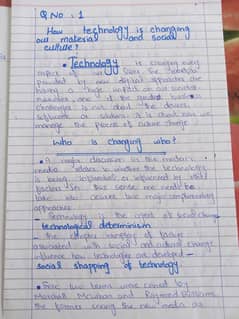 Q No : 1
How technology is changing
our material and social
culture ?
• Technology is changing every
aspect of our lives. The
by new digital
having a huge impact on our
and the
challenges is not about the devices,
software or solutions. It is about how we
manage the process of culture change
Who is changing who?
• A major discussion in the modern
media is whether the technology
is being influenced or influenced by
factors. In this sense we need to
take into account two major complementary
approaches
- Technology is the agent of social change
technological determinism
- the complex of factors
associated with social and cultural change
influence how technologies are developed -
social shapping of technology
• These two terms were coined by
Marshall McLuhan and Raymond Williams
the former the new media as